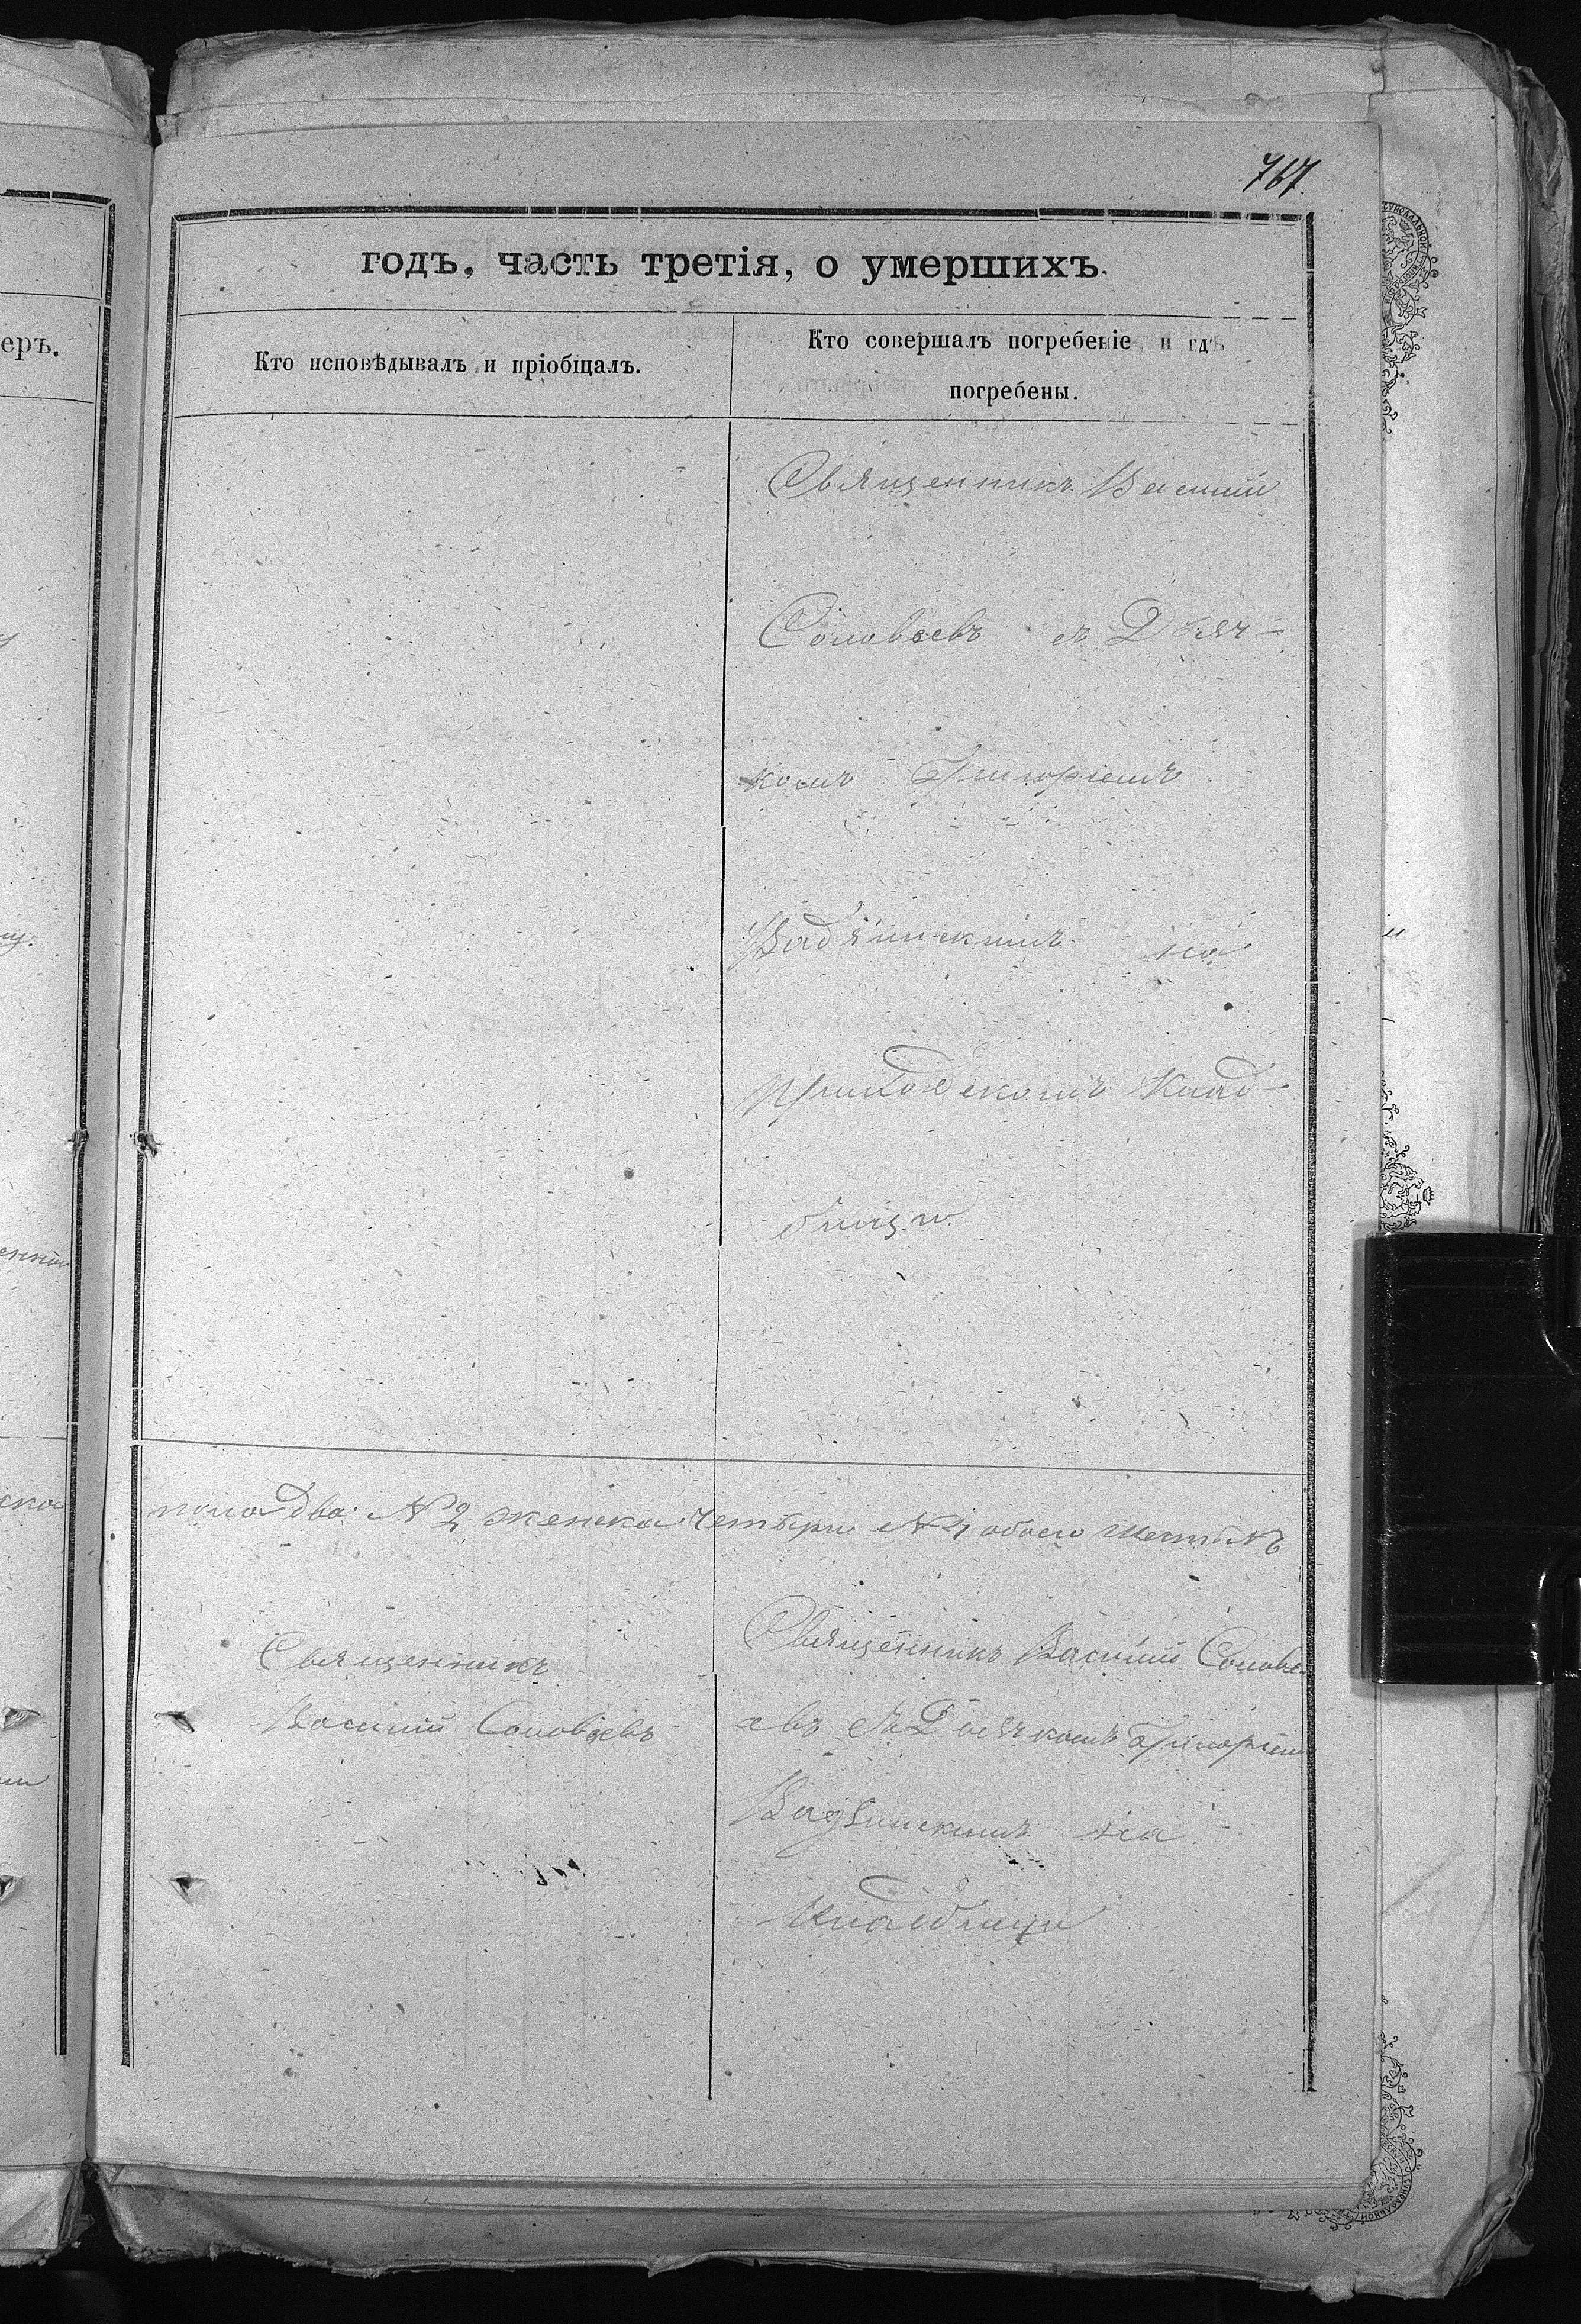 767.
годъ, часть третія, о умершихъ.
еръ.
Кто исповѣдывалъ и пріобщалъ.
Кто совершалъ погребеніе и гдѣ
погребены.
Священникъ Василій
Соловьевъ съ Дьяч-
комъ Григоріемъ
на
Приходскомъ Клад-
бищѣ.
пола два №2 женска четыри №4 обоего шесть №6
Священникъ
Василій Соловьевъ
Священникъ Василій Соловь
евъ съ Дьячкомъ Григоріем
на
Кладбищи